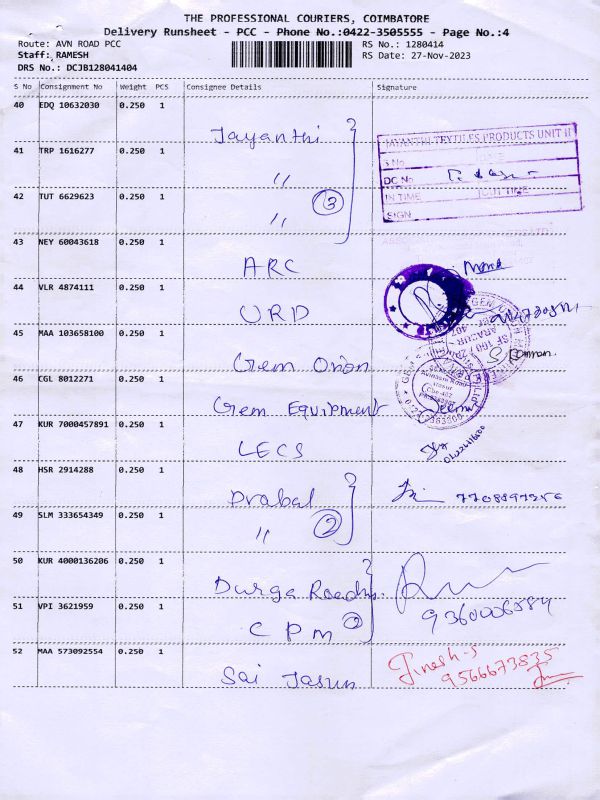 THE PROFESSIONAL COURIERS, COIMBATORE
Delivery Runsheet - PCC - Phone No.:0422-3505555 - Page No.:4
Route: AVN ROAD PCC RS No.: 1280414
Staff: RAMESH RS Date: 27-Nov-2023
DRS No.: DCJB128041404
S No Consignment No Weight PCS Consignee Details Signature
40 EDQ 10632030 0.250 1
Jayanthi
JAYANTHI TEXTILES PRODUCTS UNIT II
41 TRP 1616277 0.250 1
S No
〃
DC No
42 TUT 6629623 0.250 1
IN TIME OUT TIME
〃 3
SIGN
43 NEY 60043618 0.250 1
ARC
44 VLR 4874111 0.250 1
URD
45 MAA 103658100 0.250 1
Gem Orion
46 CGL 8012271 0.250 1
Gem Equipment
47 KUR 7000457891 0.250 1
LECS
48 HSR 2914288 0.250 1
Prabal 7708897256
49 SLM 333654349 0.250 1
〃 2
50 KUR 4000136206 0.250 1
Durga
51 VPI 3621959 0.250 1
9360006784
CPM 2
52 MAA 573092554 0.250 1
Jinesh-S
9566673835
Sai Jasun